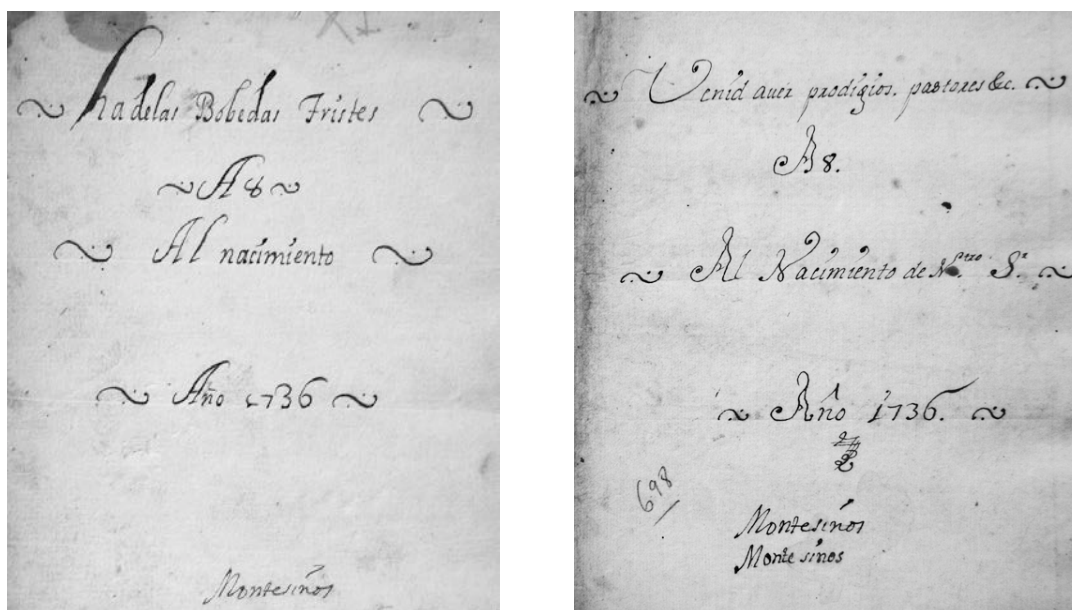 ha delas Bobedas Tristes
A 8
Al nacimiento
Año 1736
Montesiños
Venid aver prodigios. pastores &c.
A 8.
Al Nacimiento de N.tro S.r
Año 1736.
698
Montesiños
Montesinos